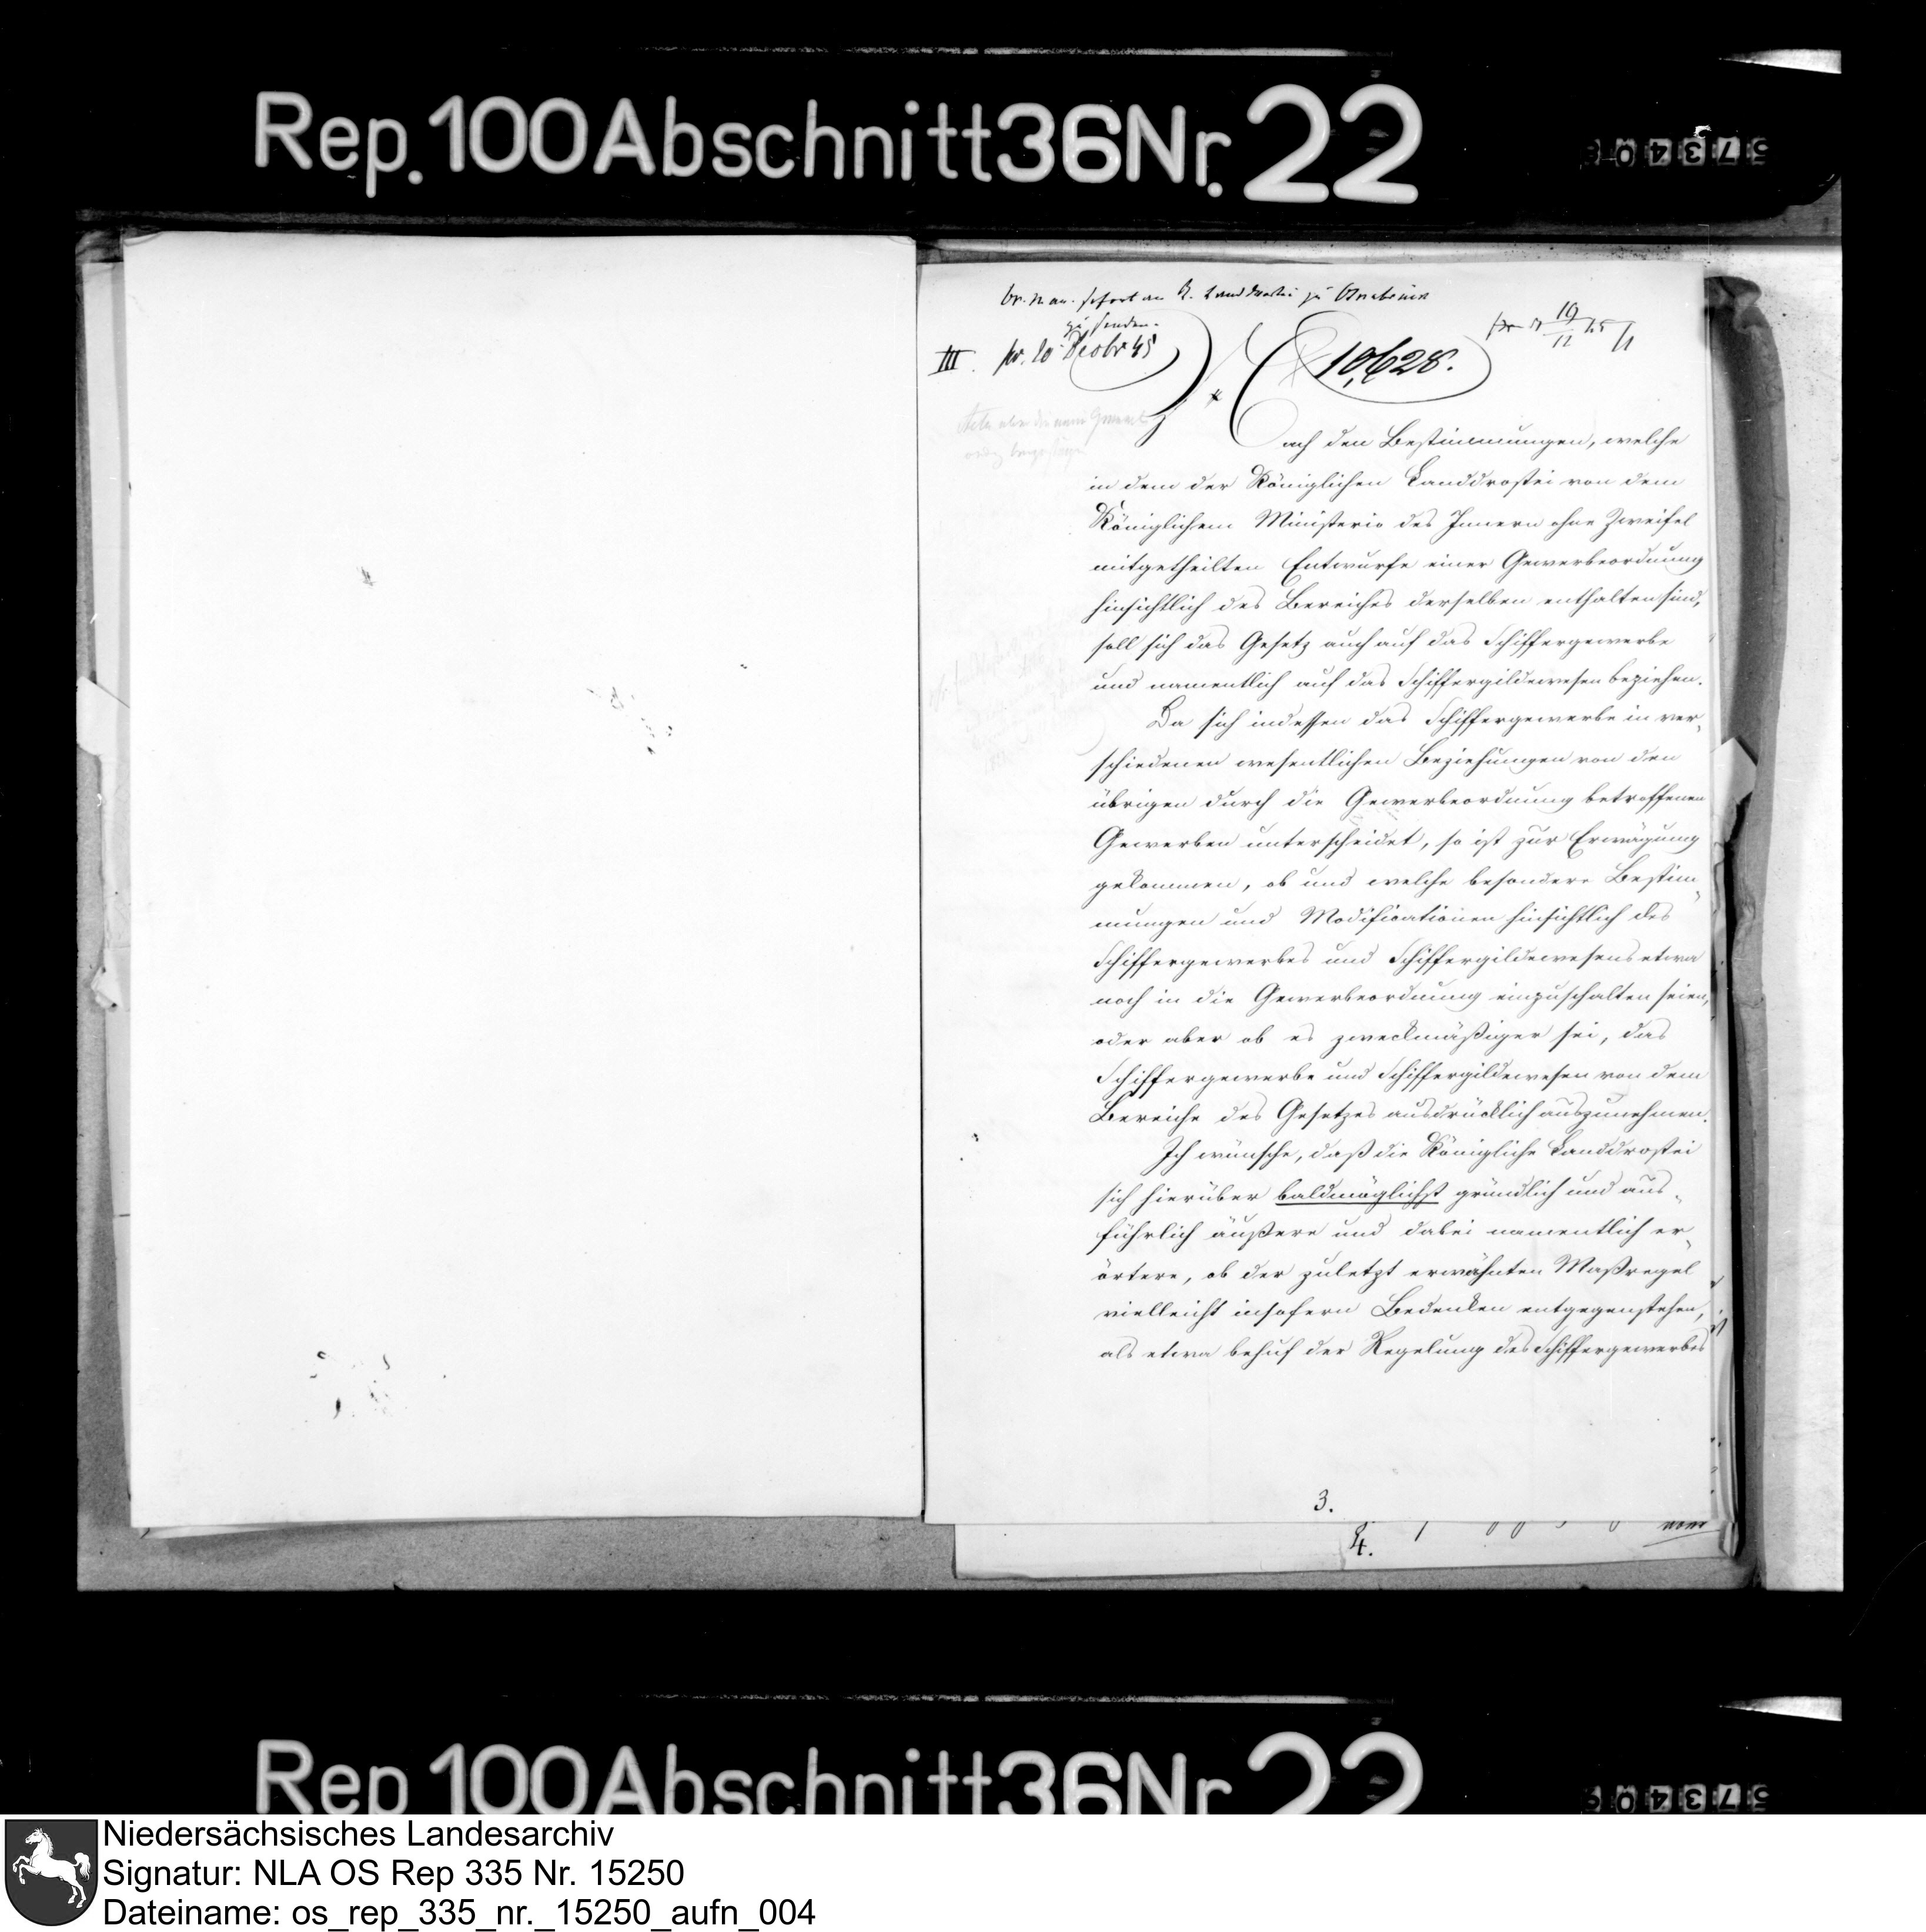 Rep. 100 Abschnitt 36 Nr. 22
57340
br. m. an. sofort an K. Landdrostei zu Osnabrück
zu senden.
III. pr. 20 Decbr 45
19
12 45
10,628.
Nach den Bestimmungen, welche
in dem der Königlichen Landdrostei von dem
Königlichem Ministerio des Innern ohne Zweifel
mitgetheilten Entwurfe einer Gewerbeordnung
hinsichtlich des Bereiches derselben enthalten sind,
soll sich das Gesetz auch auf das Schiffergewerbe
und namentlich auf das Schiffergildewesen beziehen.
Da sich indessen das Schiffergewerbe in ver-
schiedenen wesentlichen Beziehungen von den
übrigen durch die Gewerbeordnung betroffenen
Gewerben unterscheidet, so ist zur Erwägung
gekommen, ob und welche besondere Bestim-
mungen und Modificationen hinsichtlich des
Schiffergewerbes und Schiffergildewesens etwa
noch in die Gewerbeordnung einzuschalten seien,
oder aber ob es zweckmäßiger sei, das
Schiffergewerbe und Schiffergildewesen von dem
Bereiche des Gesetzes ausdrücklich auszunehmen.
Ich wünsche, daß die Königliche Landdrostei
sich hierüber baldmöglichst gründlich und aus-
führlich äußere und dabei namentlich er-
örtere, ob der zuletzt erwähnten Maßregel
vielleicht insofern Bedenken entgegenstehen,
als etwa behuf der Regelung des Schiffergewerbes
3.
4.
Rep 100 Abschnitt 36 Nr 22
57340
Niedersächsisches Landesarchiv
Signatur: NLA OS Rep 335 Nr. 15250
Dateiname: os_rep_335_nr._15250_aufn_004